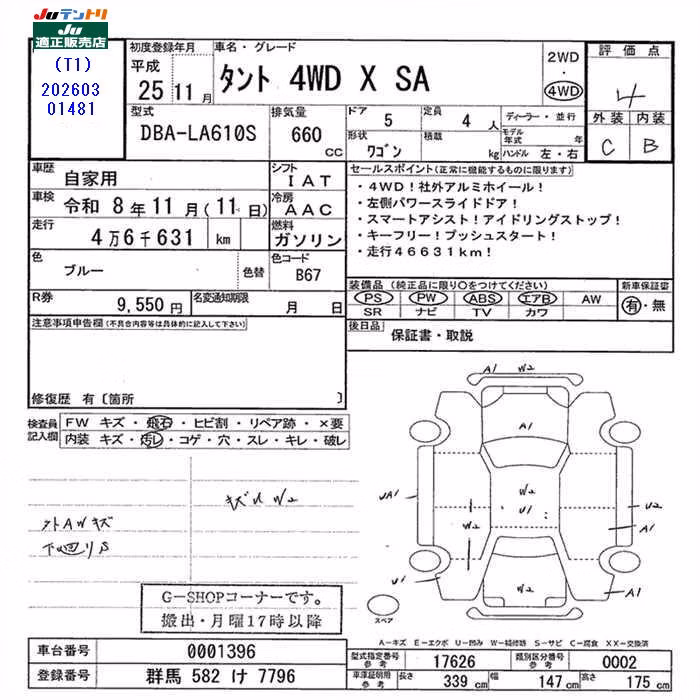 JUテントリ
JU
適正販売店
(T1)
202603
01481
初度登録年月
平成
25 11 月
車名・グレード
タント 4WD X SA
2WD
・
4WD
評価点
4
外装 内装
C B
型式
DBA-LA610S
排気量
660
CC
ドア 5
定員 4 人
形状 ワゴン
積載 kg
ディーラー・並行
モデル年式 年
ハンドル 左・右
車歴
自家用
シフト
IAT
車検
令和 8年11月(11日)
冷房
AAC
走行
4万6千631 km
燃料
ガソリン
色
ブルー
色替
色コード
B67
R券
9,550 円
名変通知期限
月 日
セールスポイント(正常に機能するものに限ります)
・4WD!社外アルミホイール!
・左側パワースライドドア!
・スマートアシスト!アイドリングストップ!
・キーフリー!プッシュスタート!
・走行46631km!
装備品(純正品に限り○をつけてください)
PS PW ABS エアB AW
SR ナビ TV カワ
新車保証書
有・無
後日品
保証書・取説
注意事項申告欄(不具合内容等は具体的に記入して下さい)
修復歴 有〔箇所 〕
検査員
記入欄
FW キズ・飛石・ヒビ割・リペア跡・×要
内装 キズ・汚レ・コゲ・穴・スレ・キレ・破レ
キズU W2
外AWキズ
下回りS
G-SHOPコーナーです。
搬出・月曜17時以降
A1 W2
A1
W2
U1
UA1
W2
U2
A1
U1
W2
A1
スペア
A－キズ E－エクボ U－凹み W－補修跡 S－サビ C－腐食 XX－交換済
車台番号
0001396
登録番号
群馬 582 け 7796
型式指定番号
参考
17626
類別区分番号
参考
0002
車庫証明用
参考
長さ 339 cm
幅 147 cm
高さ 175 cm